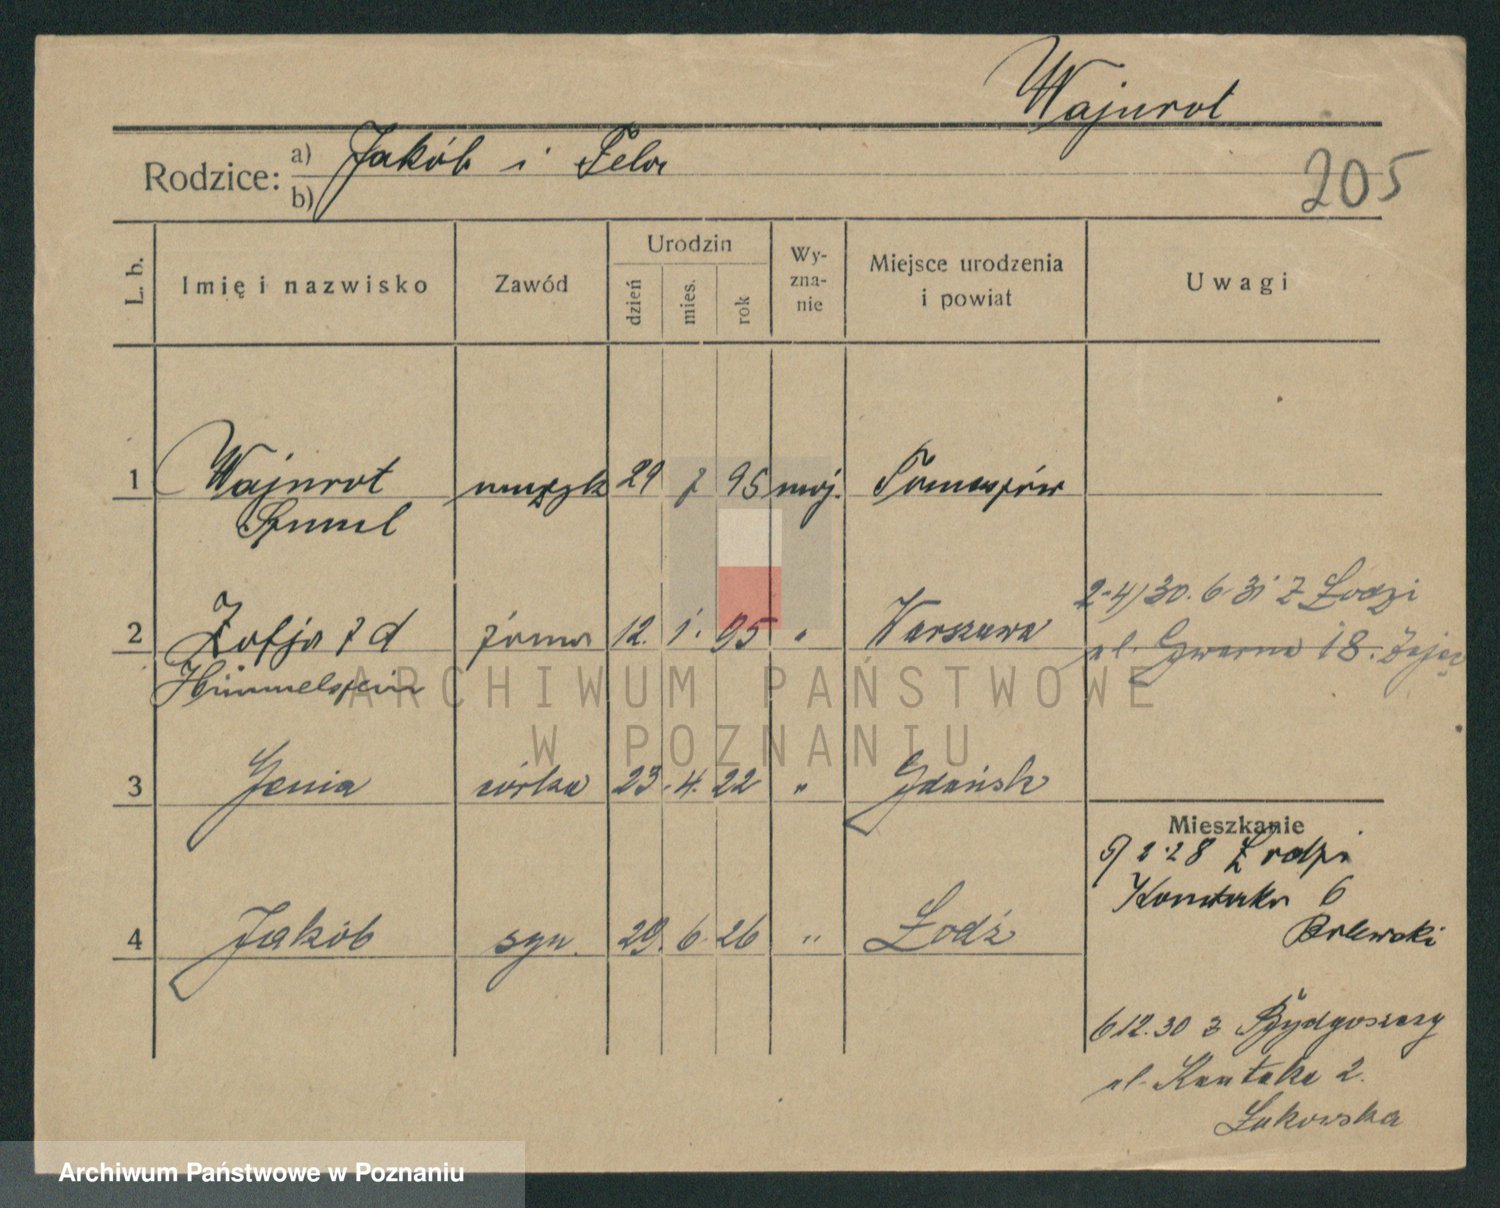 Wajnrot
Rodzice: a) Jakób i Fela
b)
205
L. b.
Imię i nazwisko
Zawód
Urodzin
dzień
mies.
rok
Wy-
zna-
nie
Miejsce urodzenia
i powiat
Uwagi
1 Wajnrot muzyk 29 7 95 moj. Tomaszów
Szmul
2-4) 30.6.31 z Łodzi
2 Zofja z d żona 12. 1. 95 " Warszawa
ul. Gwarna 18. Zając
Himmelstein
ARCHIWUM PAŃSTWOWE
W POZNANIU
3 Jenia córka 23. 4. 22 " Gdańsk
Mieszkanie
2.28 z Łodzi
6
4 Jakób syn. 29. 6. 26 " Łódź
Orlewski
6 12.30 z Bydgoszczy
ul. Kantaka 2.
Łukowska
Archiwum Państwowe w Poznaniu